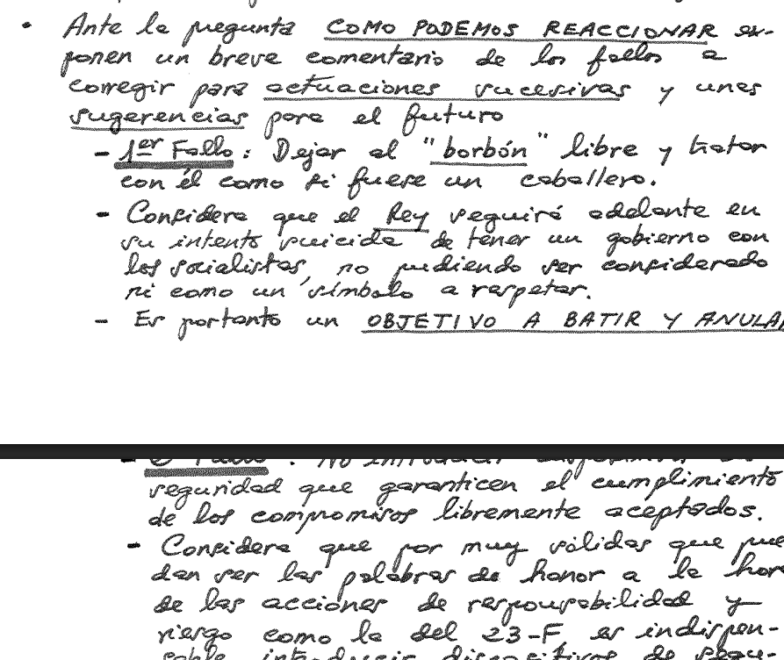 • Ante la pregunta COMO PODEMOS REACCIONAR ex-
ponen un breve comentario de los fallos a
corregir para actuaciones sucesivas y unas
sugerencias para el futuro
- 1er Fallo: Dejar al "borbón" libre y tratar
con él como si fuese un caballero.
- Considera que el Rey seguirá adelante en
su intento suicida de tener un gobierno con
los socialistas, no pudiendo ser considerado
ni como un símbolo a respetar.
- Es portanto un OBJETIVO A BATIR Y ANULAR
- Fallo: No introducir
seguridad que garanticen el cumplimiento
de los compromisos libremente aceptados.
- Considera que por muy válidas que pue-
dan ser las palabras de honor a la hora
de las acciones de responsabilidad y
riesgo como la del 23-F, es indispen-
sable introducir dispositivos de segu-